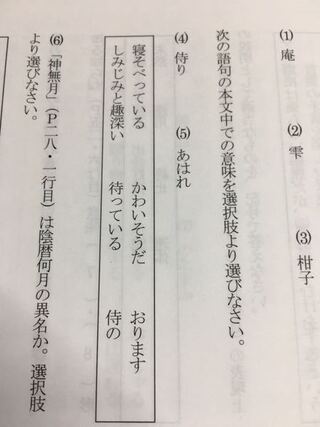 (1) 庵 (2) 雫 (3) 柑子
次の語句の本文中での意味を選択肢より選びなさい。
(4) 侍り (5) あはれ
寝そべっている かわいそうだ おります
しみじみと趣深い 待っている 侍の
(6) 「神無月」（Ｐ二八・一行目）は陰暦何月の異名か。選択肢
より選びなさい。